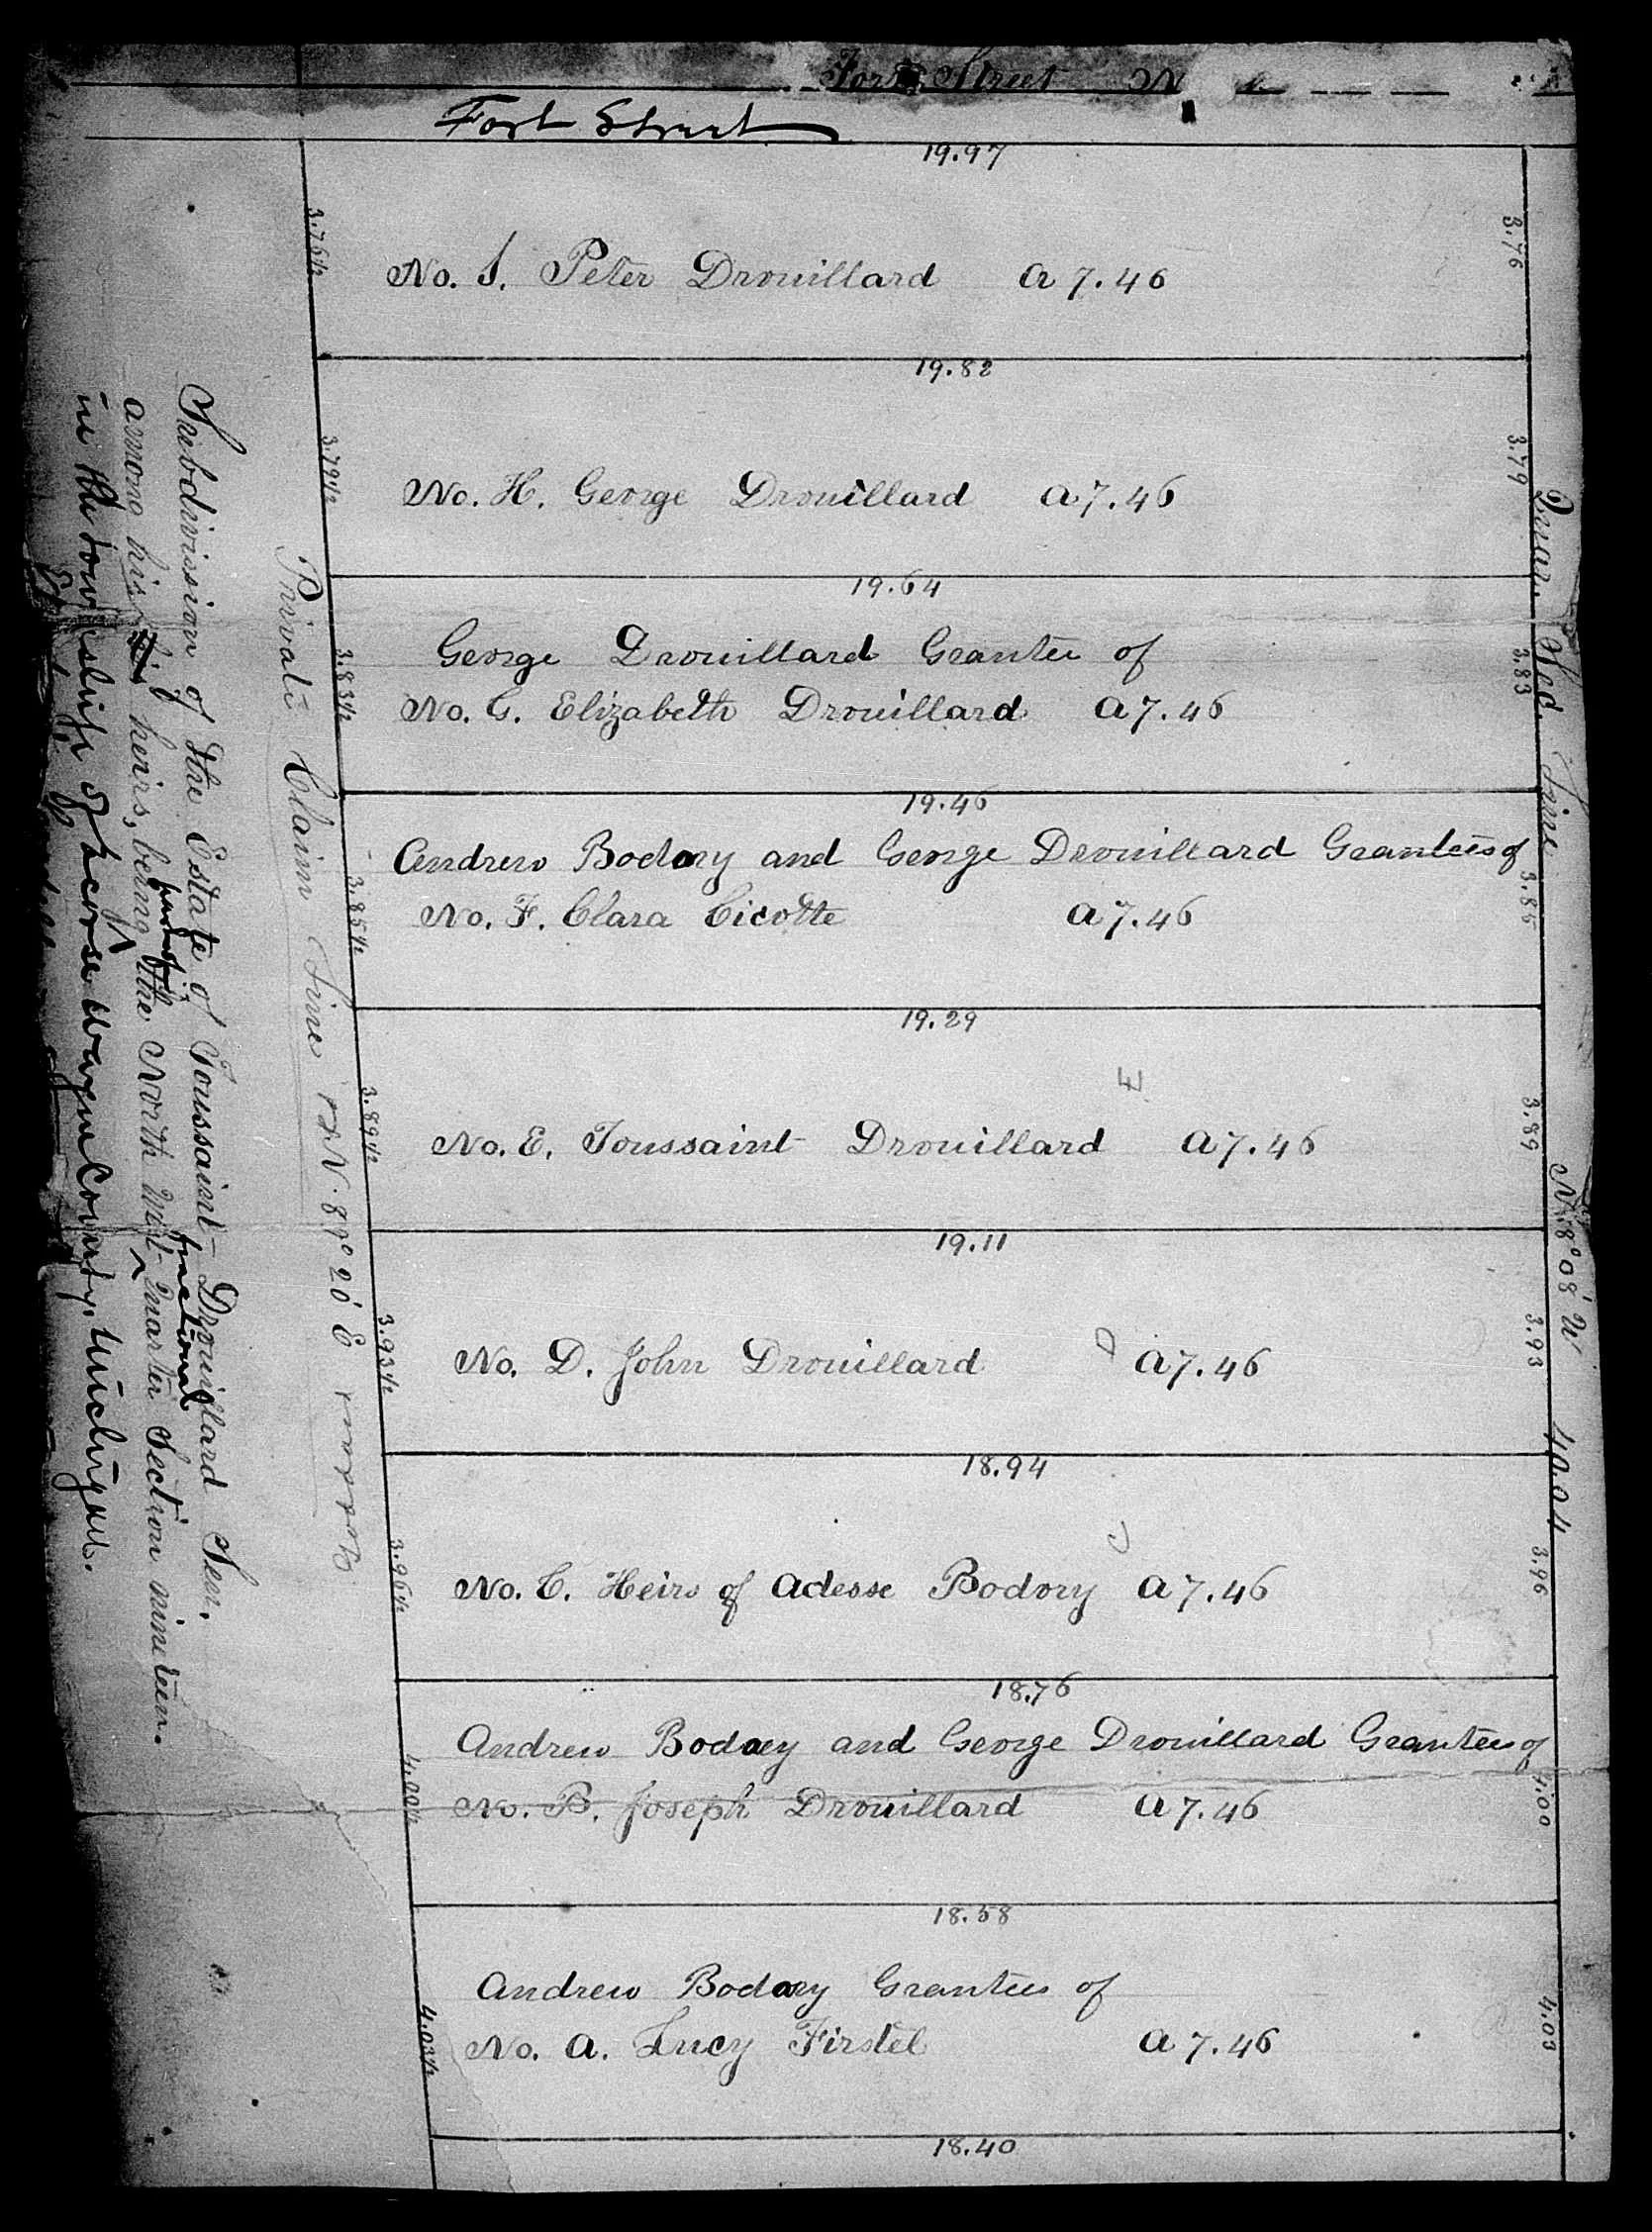 Fort Street W
Fort Street
19.97
3.75½
3.76
No. I. Peter Drouillard a 7.46
19.82
3.79½
3.79
No. H. George Drouillard a 7.46
19.64
3.83½
3.83
George Drouillard Grantee of
No. G. Elizabeth Drouillard a 7.46
19.46
3.85½
3.85
Andrew Bodary and George Drouillard Grantees of
No. F. Clara Cicotte a 7.46
19.29
E
3.89½
3.89
No. E. Toussaint Drouillard a 7.46
19.11
3.93½
3.93
No. D. John Drouillard D a 7.46
18.94
C
3.96½
3.96
No. C. Heirs of Adesse Bodory a 7.46
18.76
Andrew Bodary and George Drouillard Grantees of
4.00½
4.00
No. B. Joseph Drouillard a 7.46
18.58
Andrew Bodary Grantees of
4.03½
4.03
No. A. Lucy Firstel a 7.46
18.40
Quar. Sec. Line N. 8° 08' W 40.04
Private Claim Line N. 8° 20' E
Subdivision of the Estate of Toussaint Drouillard Sen.
among his heirs, being part of the North West fractional Quarter Section nineteen.
in the township of Ecorse Wayne County, Michigan.